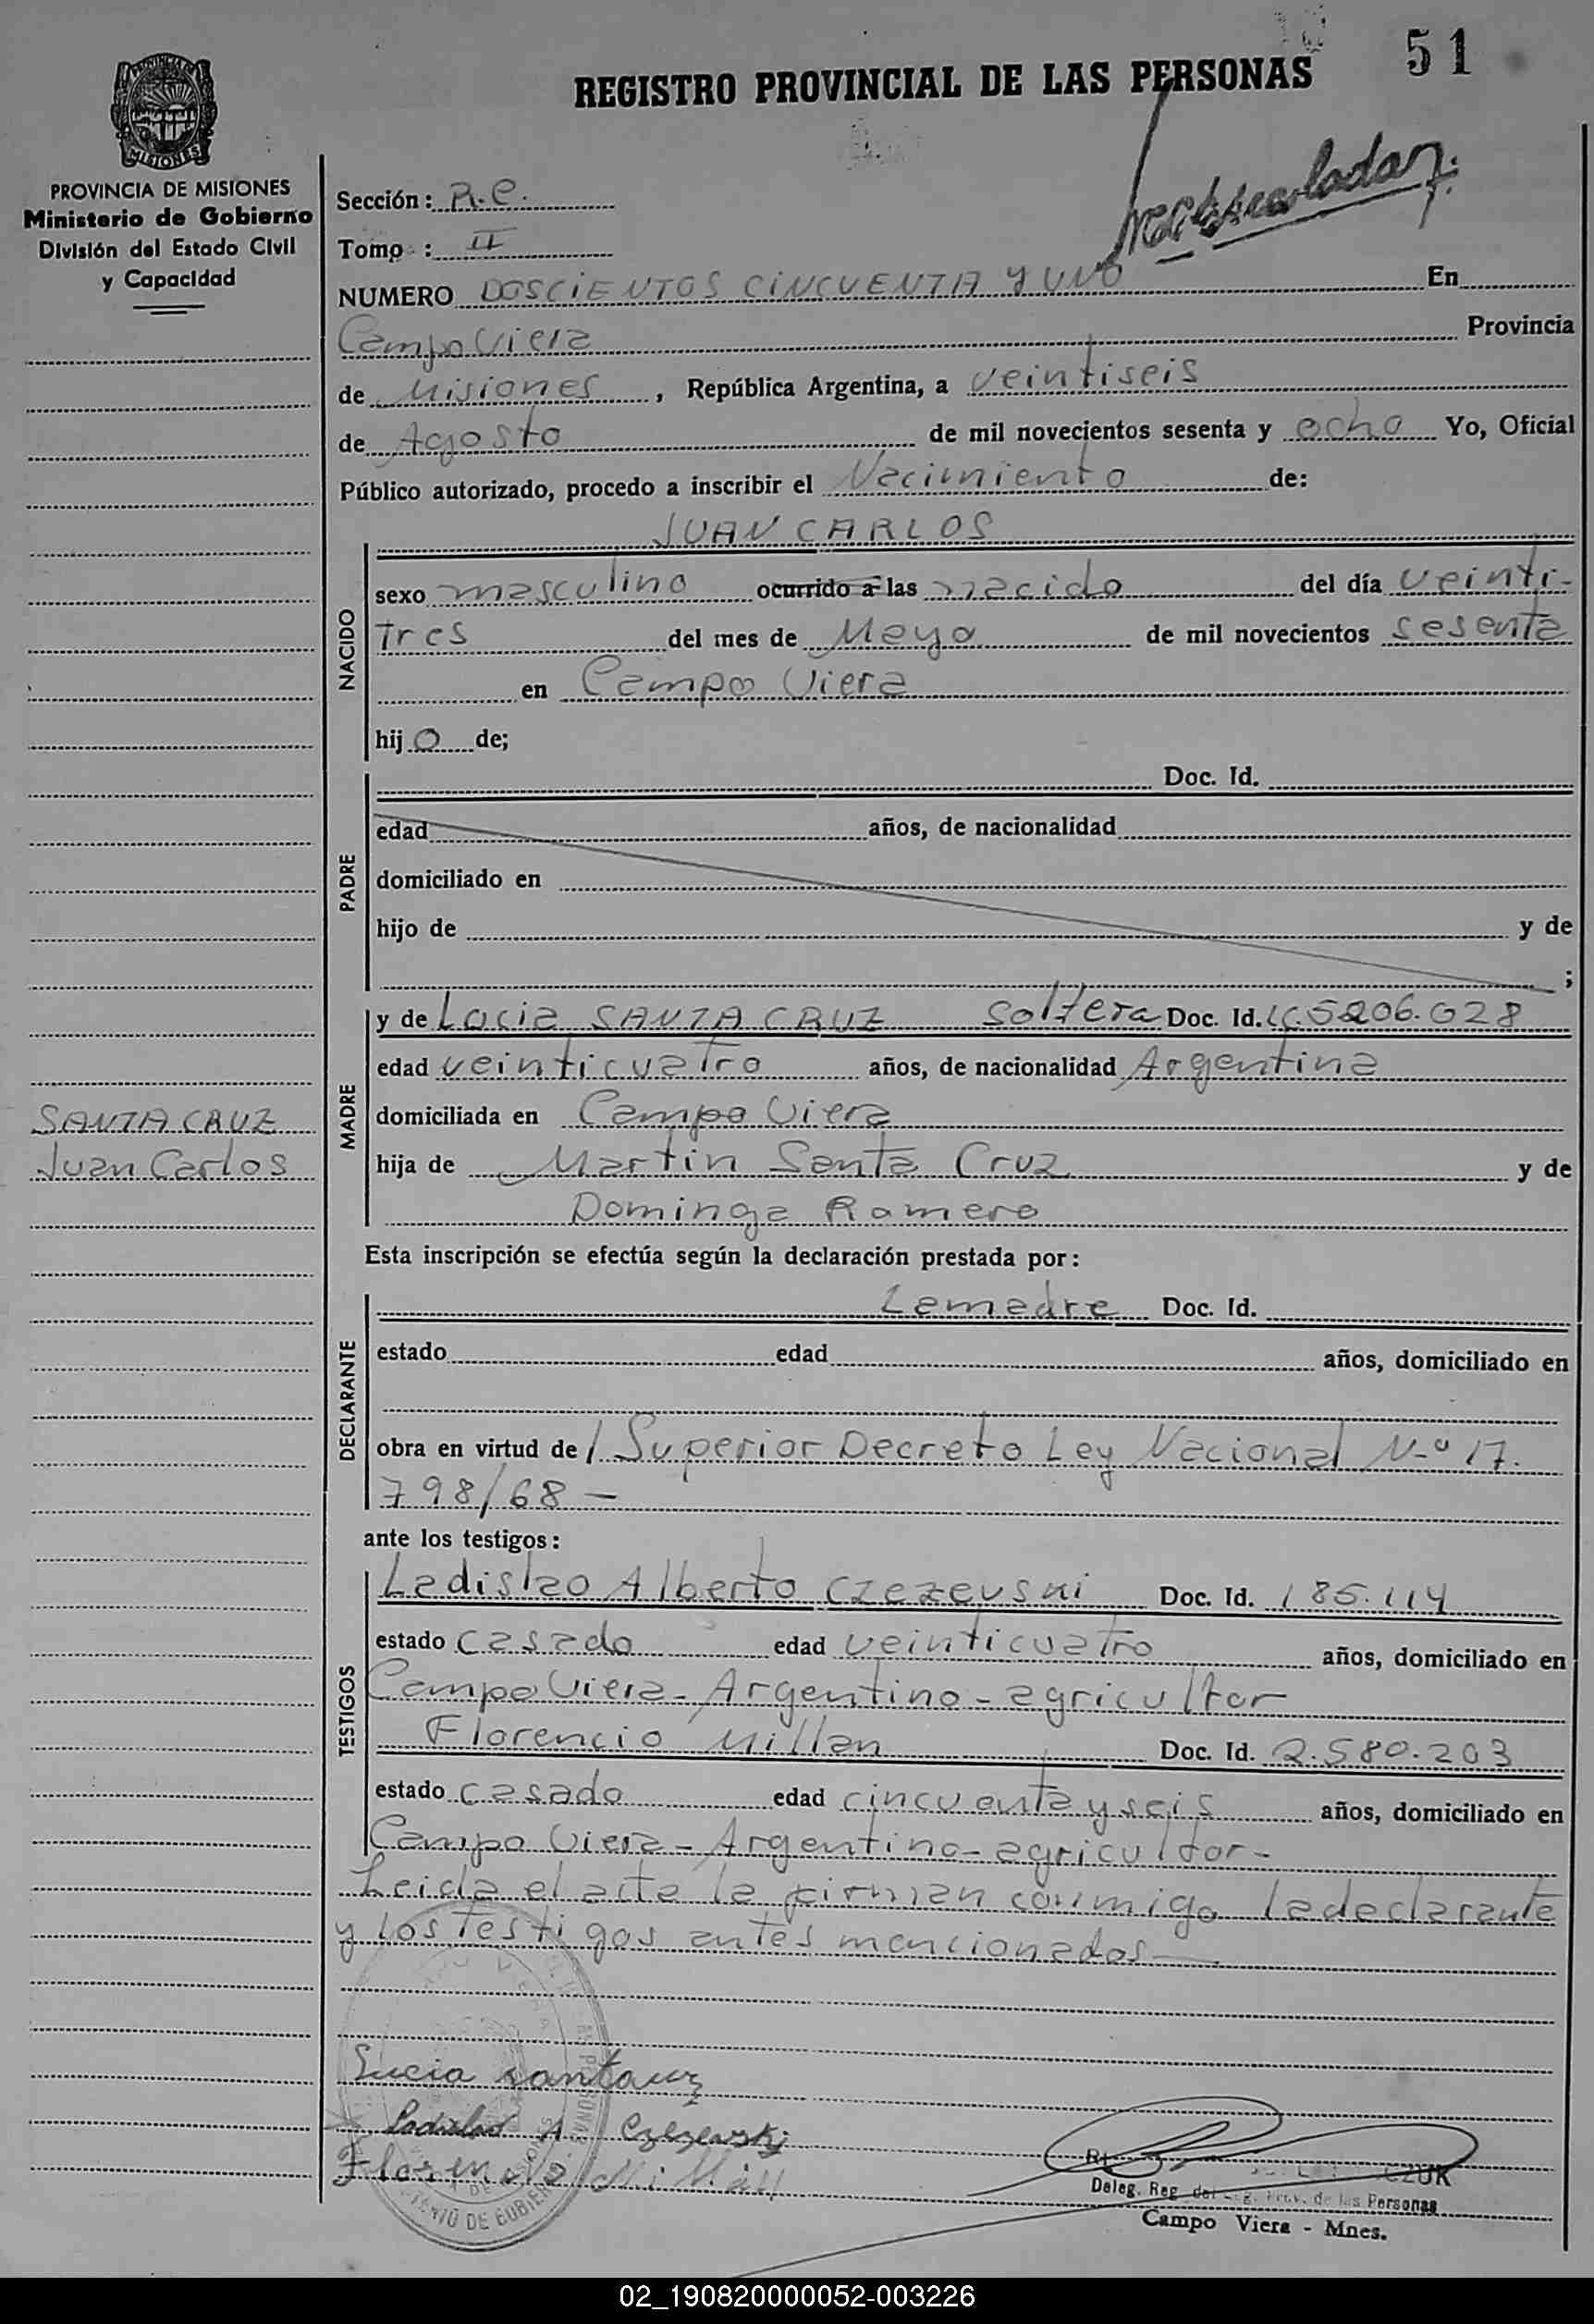 51
REGISTRO PROVINCIAL DE LAS PERSONAS
PROVINCIA DE MISIONES
Ministerio de Gobierno
División del Estado Civil
y Capacidad
Sección: R.C.
Tomo : II
NUMERO DOSCIENTOS CINCUENTA Y UNO En
Campo Viera Provincia
de Misiones, República Argentina, a veintiseis
de Agosto de mil novecientos sesenta y ocho Yo, Oficial
Público autorizado, procedo a inscribir el Nacimiento de:
JUAN CARLOS
NACIDO
sexo masculino ocurrido a las nacido del día veinti-
tres del mes de Mayo de mil novecientos sesenta
en Campo Viera
hijo de;
PADRE
Doc. Id.
edad años, de nacionalidad
domiciliado en
hijo de y de
;
MADRE
y de Lucia SANTA CRUZ soltera Doc. Id. LC.5206.028
edad veinticuatro años, de nacionalidad Argentina
domiciliada en Campo Viera
SANTA CRUZ
Juan Carlos
hija de Martin Santa Cruz y de
Dominga Ramero
Esta inscripción se efectúa según la declaración prestada por:
DECLARANTE
La madre Doc. Id.
estado edad años, domiciliado en
obra en virtud de / Superior Decreto Ley Nacional N-º 17.
798/68 -
ante los testigos:
TESTIGOS
Ladislao Alberto Czezeuski Doc. Id. 185.114
estado casado edad veinticuatro años, domiciliado en
Campo Viera - Argentino - agricultor
Florencio Millan Doc. Id. 2.580.203
estado casado edad cincuenta y seis años, domiciliado en
Campo Viera - Argentino - agricultor -
Leida el acta la firman conmigo la declarante
y los testigos antes mencionados
Lucia santa cruz
Ladislao A Czezeuski
Deleg. Reg. del Reg. Prov. de las Personas
Campo Viera - Mnes.
DE GOBIERNO
02_190820000052-003226